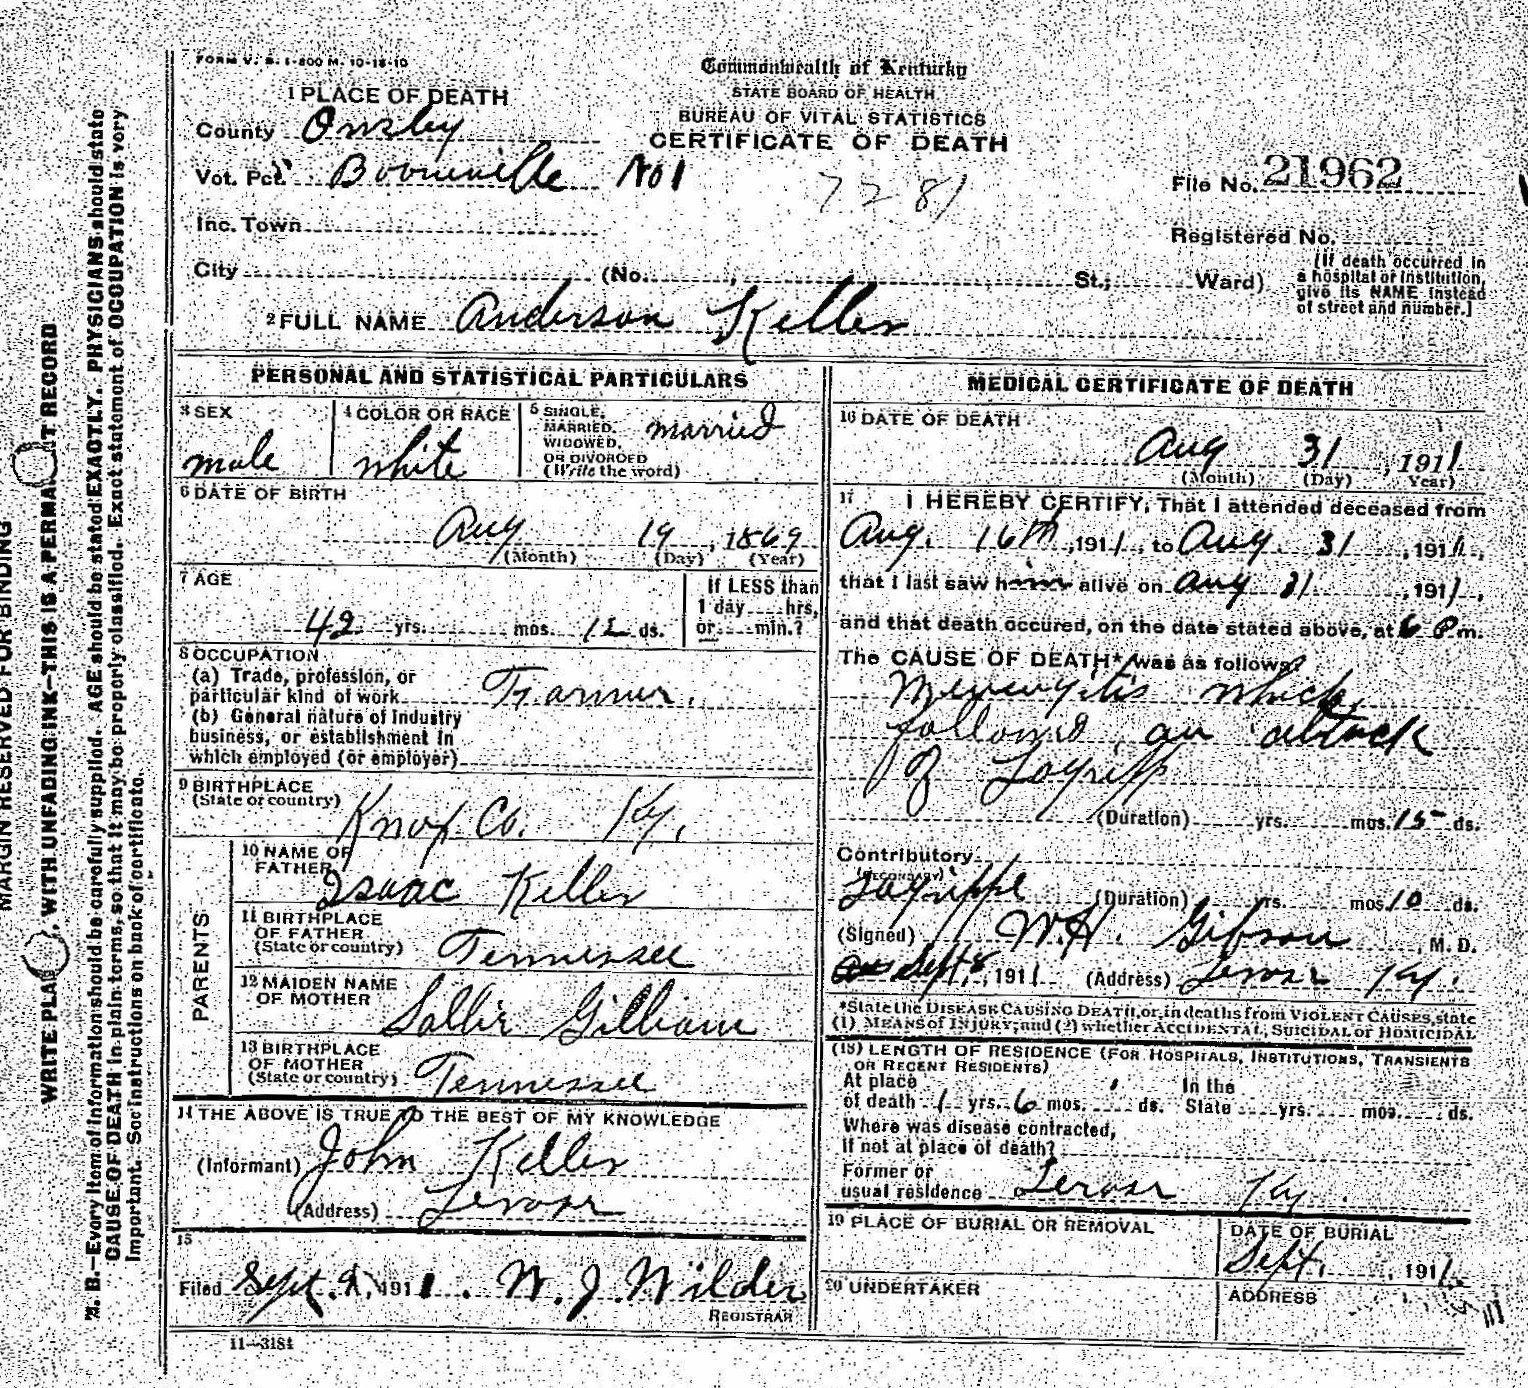 FORM V. S. 1-500 M. 10-18-10
Commonwealth of Kentucky
STATE BOARD OF HEALTH
BUREAU OF VITAL STATISTICS
CERTIFICATE OF DEATH
1 PLACE OF DEATH
County Owsley
Vot. Pct. Booneville No 1
7281
File No. 21962
Inc. Town
Registered No.
City (No. , St.; Ward)
(If death occurred in
a hospital or institution,
give its NAME instead
of street and number.)
2 FULL NAME Anderson Keller
PERSONAL AND STATISTICAL PARTICULARS
3 SEX
male
4 COLOR OR RACE
white
5 SINGLE,
MARRIED,
WIDOWED,
OR DIVORCED
(Write the word)
married
6 DATE OF BIRTH
Aug 19, 1869
(Month) (Day) (Year)
7 AGE
42 yrs. mos. 12 ds.
If LESS than
1 day hrs,
or min.?
8 OCCUPATION
(a) Trade, profession, or
particular kind of work Farmer.
(b) General nature of Industry
business, or establishment in
which employed (or employer)
9 BIRTHPLACE
(State or country)
Knox Co. Ky.
PARENTS
10 NAME OF
FATHER
Isaac Keller
11 BIRTHPLACE
OF FATHER
(State or country)
Tennessee
12 MAIDEN NAME
OF MOTHER
Sallie Gilliam
13 BIRTHPLACE
OF MOTHER
(State or country) Tennessee
14 THE ABOVE IS TRUE TO THE BEST OF MY KNOWLEDGE
(Informant) John Keller
(Address) Lerose
15
Filed Sept. 9, 1911. W. J. Wilder
REGISTRAR
11-3184
MEDICAL CERTIFICATE OF DEATH
16 DATE OF DEATH
Aug 31, 1911
(Month) (Day) Year)
17 I HEREBY CERTIFY, That I attended deceased from
Aug. 16th, 1911, to Aug. 31, 1911,
that I last saw him alive on Aug 31, 1911,
and that death occured, on the date stated above, at 6 P m.
The CAUSE OF DEATH* was as follows:
Meningitis which
followed an attack
of Lagripp
(Duration) yrs. mos. 15 ds.
Contributory
(SECONDARY)
Lagrippe (Duration) yrs. mos. 10 ds.
(Signed) W. H. Gibson, M. D.
Sept 8, 1911 (Address) Lerose Ky.
*State the DISEASE CAUSING DEATH, or, in deaths from VIOLENT CAUSES, state
(1) MEANS of INJURY; and (2) whether ACCIDENTAL, SUICIDAL or HOMICIDAL
(18) LENGTH OF RESIDENCE (FOR HOSPITALS, INSTITUTIONS, TRANSIENTS
OR RECENT RESIDENTS)
At place In the
of death 1 yrs. 6 mos. ds. State yrs. mos. ds.
Where was disease contracted,
If not at place of death?
Former or
usual residence Lerose Ky.
19 PLACE OF BURIAL OR REMOVAL
DATE OF BURIAL
Sept. , 1911.
20 UNDERTAKER
ADDRESS
MARGIN RESERVED FOR BINDING
WRITE PLAINLY, WITH UNFADING INK—THIS IS A PERMANENT RECORD
N. B.—Every item of information should be carefully supplied. AGE should be stated EXACTLY. PHYSICIANS should state
CAUSE OF DEATH in plain terms, so that it may be properly classified. Exact statement of OCCUPATION is very
important. See instructions on back of certificate.